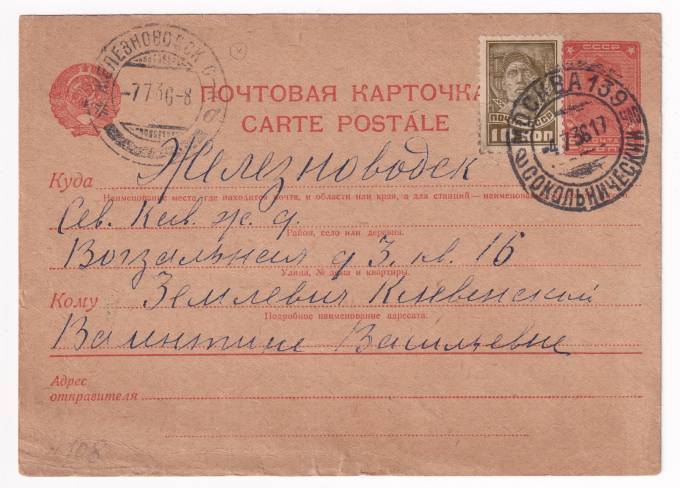 ЖЕЛЕЗНОВОДСК
-7736-8
СССР
МОСКВА 139
-4.7.36.17
СОКОЛЬНИЧЕСКИЙ
ПОЧТА СССР
10 КОП
ПОЧТОВАЯ КАРТОЧКА
CARTE POSTALE
Куда Железноводск
Наименование места, где находится почта, и области или края, а для станций — наименование
Сев. Кав. ж. д.
Район, село или деревня.
Вокзальная д 3. кв. 16
Улица, № дома и квартиры.
Кому Землевич Княвенской
Подробное наименование адресата:
Валентине Васильевне
Адрес
отправителя
108